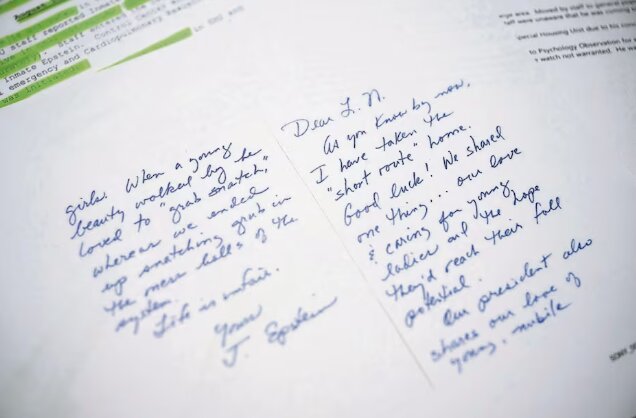 August
staff reported inmat
staff entered
inmate Epstein. Control Center
emergency and Cardiopulmonary
was initiated
area. Moved by staff to general
were unaware that he was coming
Housing Unit due to his
to Psychology Observation for
watch not warranted. He
Dear L. N.
As you know by now,
I have taken the
"short route" home.
Good luck! We shared
one thing... our love
& caring for young
ladies and the hope
they'd reach their full
potential.
Our president also
shares our love of
young, nubile
girls. When a young
beauty walked by he
loved to "grab snatch,"
whereas we ended
up snatching grub in
the mess halls of the
system.
Life is unfair.
Yours
J. Epstein